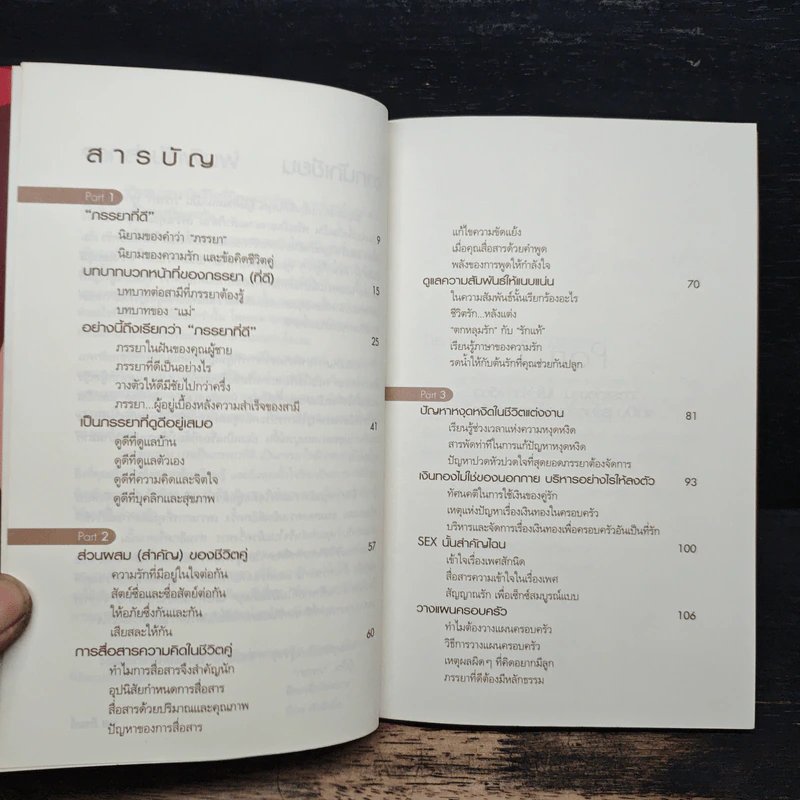 สารบัญ
Part 1
"ภรรยาที่ดี" 9
นิยามของคำว่า "ภรรยา"
นิยามของความรัก และข้อคิดชีวิตคู่
บทบาทบวกหน้าที่ของภรรยา (ที่ดี) 15
บทบาทต่อสามีที่ภรรยาต้องรู้
บทบาทของ "แม่"
อย่างนี้ถึงเรียกว่า "ภรรยาที่ดี" 25
ภรรยาในฝันของคุณผู้ชาย
ภรรยาที่ดีเป็นอย่างไร
วางตัวให้ดีมีชัยไปกว่าครึ่ง
ภรรยา...ผู้อยู่เบื้องหลังความสำเร็จของสามี
เป็นภรรยาที่ดูดีอยู่เสมอ 41
ดูดีที่ดูแลบ้าน
ดูดีที่ดูแลตัวเอง
ดูดีที่ความคิดและจิตใจ
ดูดีที่บุคลิกและสุขภาพ
Part 2
ส่วนผสม (สำคัญ) ของชีวิตคู่ 57
ความรักที่มีอยู่ในใจต่อกัน
สัตย์ซื่อและซื่อสัตย์ต่อกัน
ให้อภัยซึ่งกันและกัน
เสียสละให้กัน
การสื่อสารความคิดในชีวิตคู่ 60
ทำไมการสื่อสารจึงสำคัญนัก
อุปนิสัยกำหนดการสื่อสาร
สื่อสารด้วยปริมาณและคุณภาพ
ปัญหาของการสื่อสาร
แก้ไขความขัดแย้ง
เมื่อคุณสื่อสารด้วยคำพูด
พลังของการพูดให้กำลังใจ
ดูแลความสัมพันธ์ให้แนบแน่น 70
ในความสัมพันธ์นั้นเรียกร้องอะไร
ชีวิตรัก...หลังแต่ง
"ตกหลุมรัก" กับ "รักแท้"
เรียนรู้ภาษาของความรัก
รดน้ำให้กับต้นรักที่คุณช่วยกันปลูก
Part 3
ปัญหาหงุดหงิดในชีวิตแต่งงาน 81
เรียนรู้ช่วงเวลาแห่งความหงุดหงิด
สารพัดท่าทีในการแก้ปัญหาหงุดหงิด
ปัญหาปวดหัวปวดใจที่สุดยอดภรรยาต้องจัดการ
เงินทองไม่ใช่ของนอกกาย บริหารอย่างไรให้ลงตัว 93
ทัศนคติในการใช้เงินของคู่รัก
เหตุแห่งปัญหาเรื่องเงินทองในครอบครัว
บริหารและจัดการเรื่องเงินทองเพื่อครอบครัวอันเป็นที่รัก
SEX นั้นสำคัญไฉน 100
เข้าใจเรื่องเพศสักนิด
สื่อสารความเข้าใจในเรื่องเพศ
สัญญาณรัก เพื่อเซ็กซ์สมบูรณ์แบบ
วางแผนครอบครัว 106
ทำไมต้องวางแผนครอบครัว
วิธีการวางแผนครอบครัว
เหตุผลผิดๆ ที่คิดอยากมีลูก
ภรรยาที่ดีต้องมีหลักธรรม